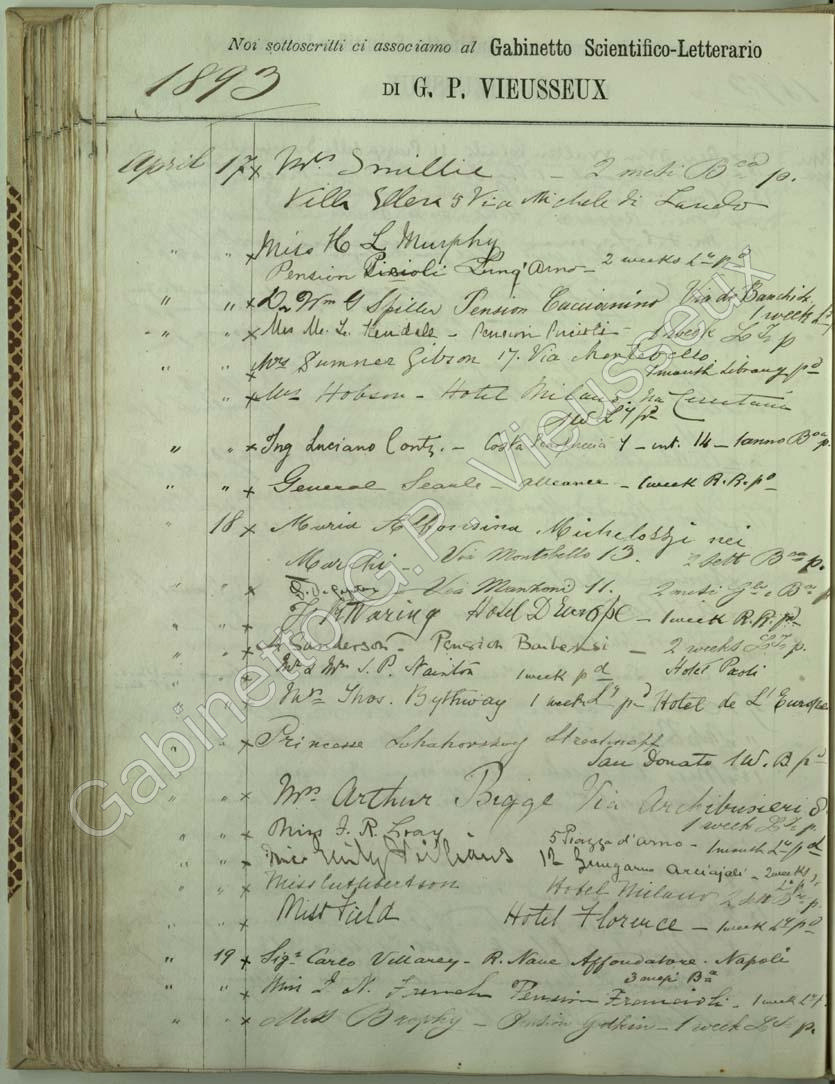 Noi sottoscritti ci associamo al Gabinetto Scientifico-Letterario
1893
DI G. P. VIEUSSEUX
April 17 x Mrs Smillie - 2 mesi Bca p.
Villa Ellera 5 Via Michele di Lando
" " x Miss H L Murphy
Pension Piccioli Lung'Arno - 2 weeks Ly pd
" " x Dr Wm G Spiller Pension Via de Banchi
1 week
" " x Miss M. L. - Pension Piccioli - 1 week p
x Mrs Sumner Gibson 17. Via Montebello
1 month Library pd
x Mrs Hobson - Hotel Milano. Via Cerretani
1 W Ly pd
" " x Ing Luciano Conty. - Costa 7 - int. 14 - 1 anno Bca p.
" " x General Searle - alleance - 1 week R.R. pd
" 18 x Maria Alfonsina Michelozzi nei
Marchi - Via Montebello 13. 2 sett Bca p.
" " x Via Manzoni 11. 2 mesi Bca p
" " x Waring Hotel D'Europe - 1 week R.R. pd
" " x Sanderson - Pension Barbensi - 2 weeks p.
" " x Mr & Mrs S. P. Nainton 1 week pd Hotel Paoli
" " x Mrs Thos. Bythway 1 week Ly pd Hotel de L'Europe
" " x Princesse
San Donato 1 W. B pd
" " x Mrs Arthur Bigge Via Archibusieri 8
1 week p.
" " x Miss F. R. Gray 5 Piazza d'Arno - 1 month Ly pd
" " x Miss Emily 12 Lungarno Acciajoli - 2 weeks
Ly p
" " x Miss Cuthbertson Hotel Milano 2 sett p.
" " x Miss Field Hotel Florence - 1 week Ly pd
" 19 x Sigr Carlo Villarey - R. Nave Affondatore. Napoli
3 mesi Bca
" " x Miss J. N. French Pension Francioli - 1 week Ly p.
" " x Miss Brophy - Pension - 1 week p.
Gabinetto G.P. Vieusseux
Gabinetto G.P. Vieusseux